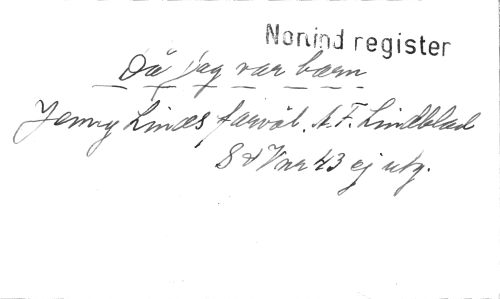 Norlind register
Då jag var barn
Jenny Linds farväl. A. F. Lindblad
S & V nr 43 ej utg.